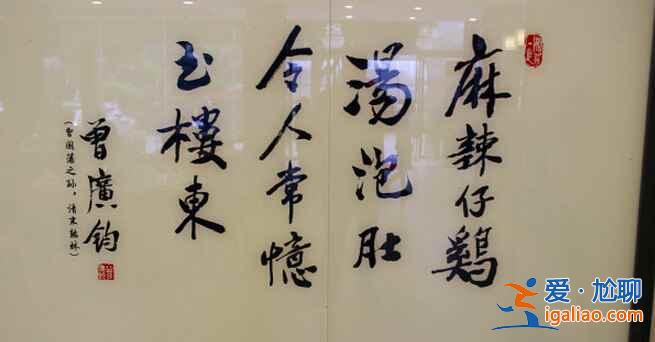 麻辣仔鷄
湯泡肚
令人常憶
玉樓東
曾廣鈞
(曾國藩之孫，清末翰林)
爱·尬聊
igaliao.com